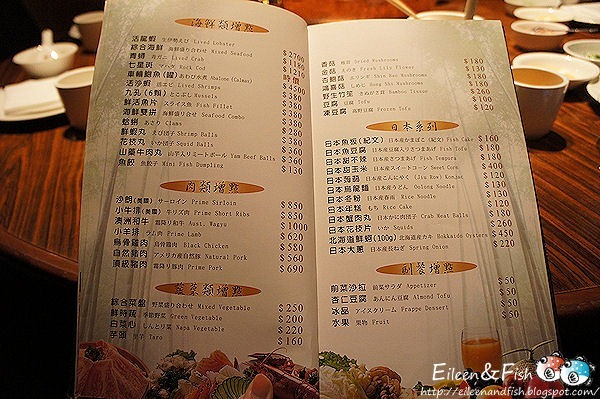 海鮮類增點
活龍蝦 生伊勢えび Lived Lobster
綜合海鮮 海鮮盛り合わせ Mixed Seafood $2700
青蟳 青ガニ Lived Crab $1180
七星斑 マハタ Rock Cod $1210
車輪鮑魚(罐) あわび水煮 Abalone (Calmex) 時價
活沙蝦 活エビ Lived Shrimps $4500
九孔(6顆) とこぶし Mussels $380
鮮活魚片 スライス魚 Fish Fillet $380
海鮮雙拼 海鮮盛り合せ Seafood Combo $380
蛤蜊 あさり Clams $380
鮮蝦丸 えび団子 Shrimp Balls $380
花枝丸 いか団子 Squid Balls $380
山藥牛肉丸 山芋入りミートボール Yam Beef Balls $360
魚餃 魚餃子 Mini Fish Dumpling $130
肉類增點
沙朗(美國) サーロイン Prime Sirloin $850
小牛排(美國) 牛リブ肉 Prime Short Ribs $850
澳洲和牛 霜降り和牛 Aust. Wagyu $1000
小羊排 ラム肉 Prime Lamb $620
烏骨雞肉 烏骨鶏肉 Black Chicken $580
自然豬肉 アメリカ産自然豚 Natural Pork $560
頂級豬肉 霜降り豚肉 Prime Pork $690
蔬菜類增點
綜合菜盤 野菜盛り合わせ Mixed Vegetable $250
鮮時蔬 季節野菜 Green Vegetable $200
白菜心 しんとり菜 Napa Vegetable $220
芋頭 里芋 Taro $160
香菇 椎茸 Dried Mushrooms $180
金菇 えのき Fresh Lily Flower $130
杏菇 エリンギ Shin Bao Mushrooms $180
鴻喜菇 しめじ Hong Shi Mushrooms $180
野生竹笙 きぬがさ茸 Bamboo Texture $260
豆腐 豆腐 Tofu $100
凍豆腐 高野豆腐 Frozen Tofu $120
日本系列
日本魚板(紀文) 日本産かまぼこ(紀文) Fish Cake $160
日本魚豆腐 日本産豆腐入りさつまあげ Fish Tofu $140
日本甜不辣 日本産さつまあげ Fish Tempura $180
日本甜玉米 日本産スイートコーン Sweet Corn $140
日本蒟蒻 日本産こんにゃく (Jiu Ron) Konjac $130
日本烏龍麵 日本産うどん Oolong Noodle $130
日本冬粉 日本産春雨 Rice Noodle $130
日本年糕 もち Rice Cake $130
日本蟹肉丸 日本産かに肉団子 Crab Meat Balls $180
日本花枝片 いか Squids $180
北海道鮮蚵(100g) 北海道産カキ Hokkaido Oysters $450
日本大蔥 日本産長ねぎ Spring Onion $120
副餐增點
前菜沙拉 前菜サラダ Appetizer $50
杏仁豆腐 あんにん豆腐 Almond Tofu $50
冰品 アイスクリーム Frappe Dessert $50
水果 果物 Fruit $50
Eileen&Fish
http://eileenandfish.blogspot.com/